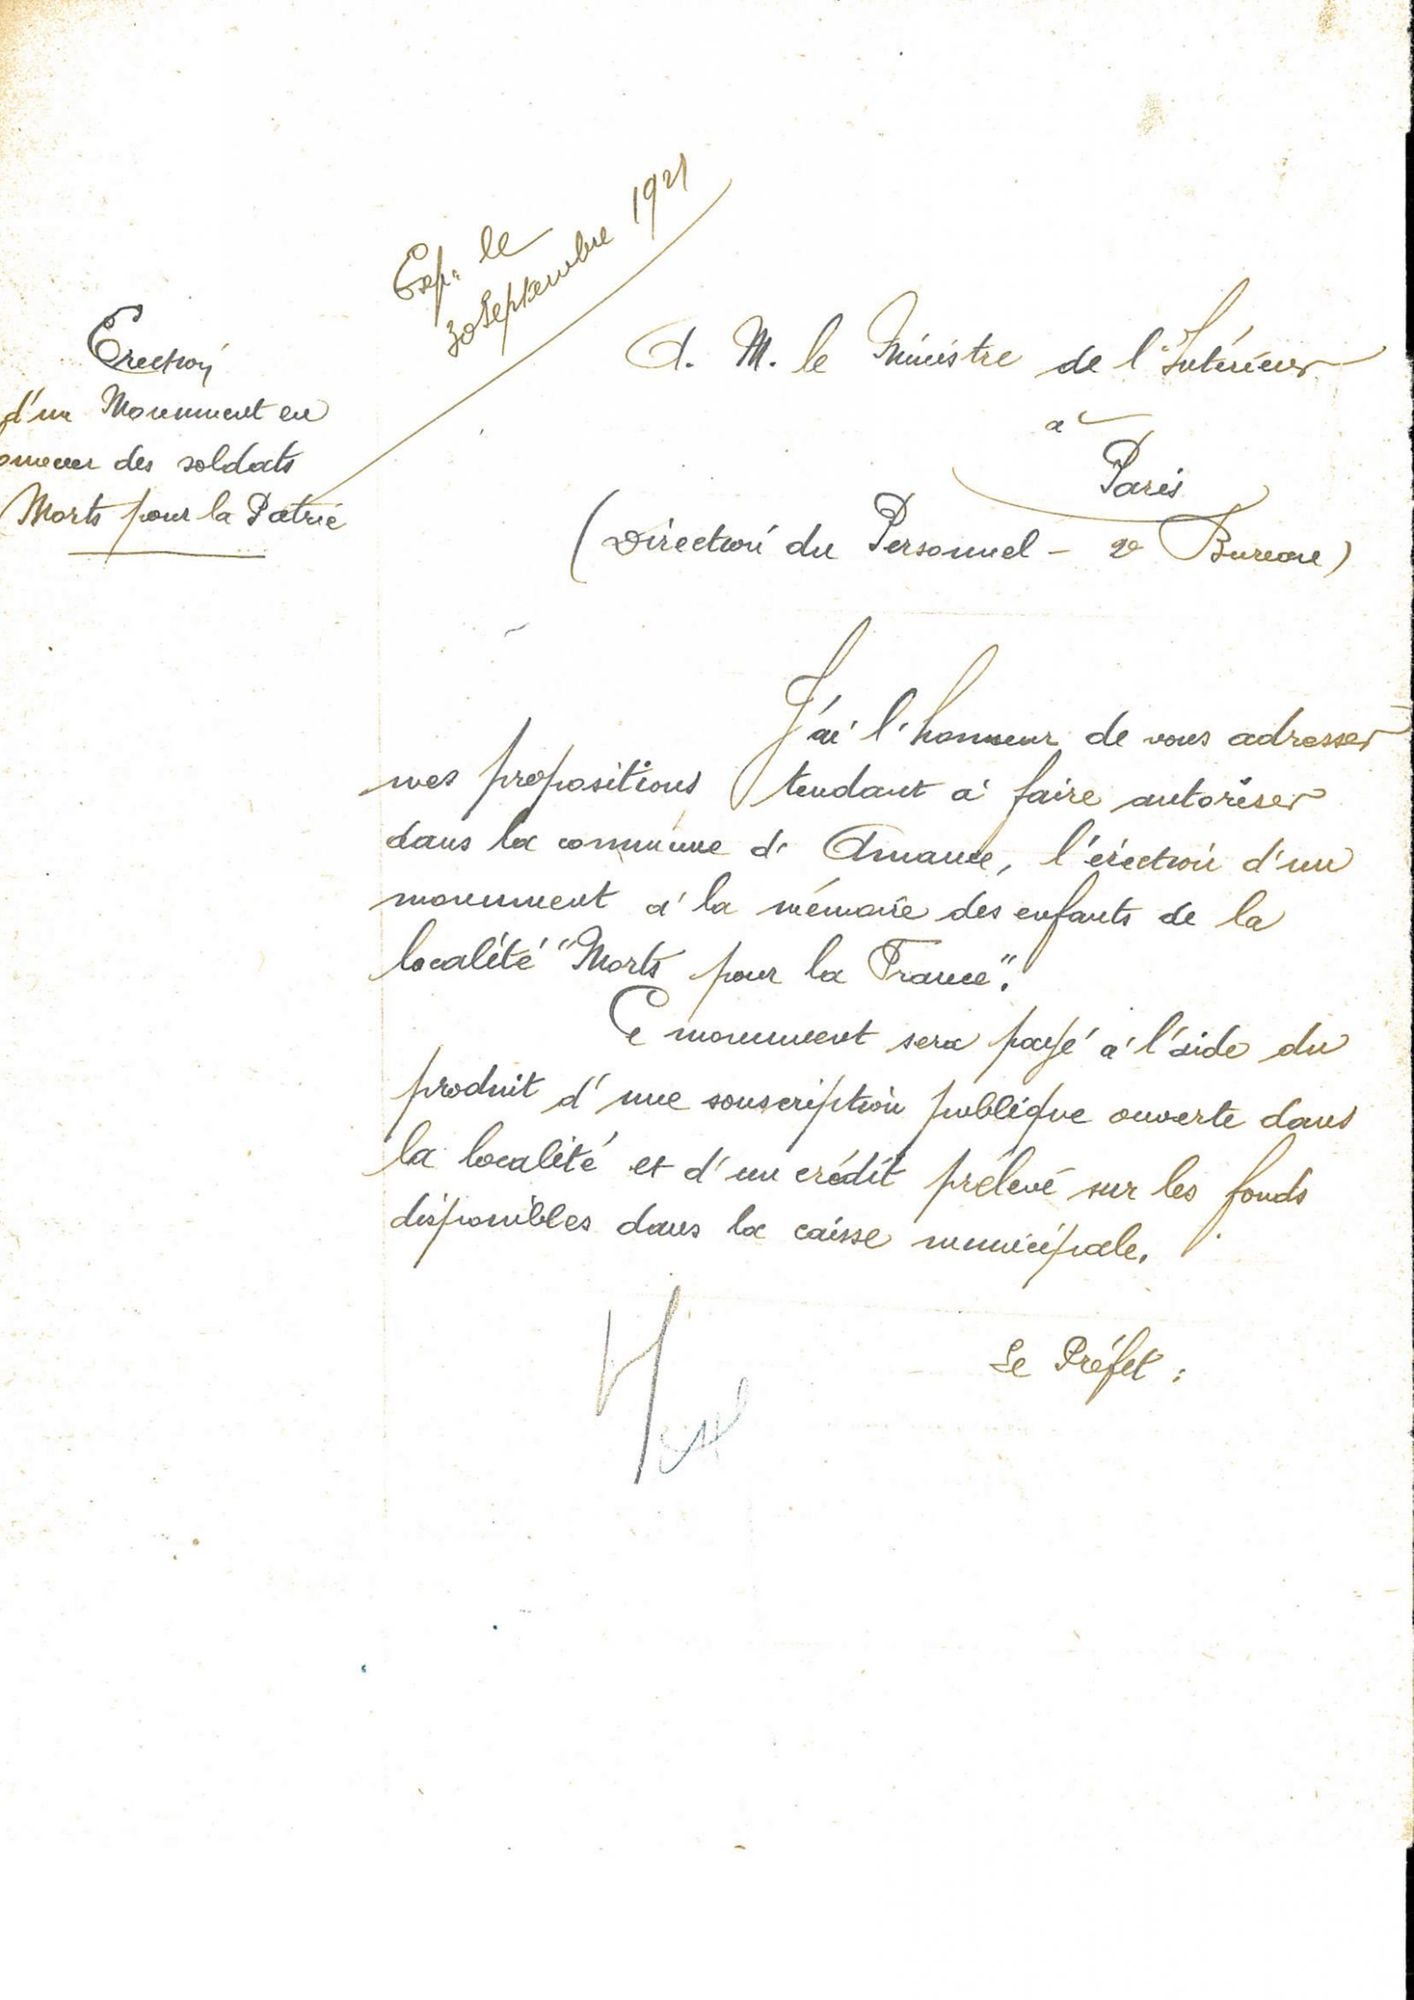 Exp. le
30 Septembre 1921
Erection
d'un Monument en
onneur des soldats
Morts pour la Patrie
A. M. le Ministre de l'Intérieur
à
Paris
(Direction du Personnel - 2e Bureau)
J'ai l'honneur de vous adresser
mes propositions tendant à faire autoriser
dans la commune d' Amance, l'érection d'un
monument à la mémoire des enfants de la
localité "Morts pour la France".
Ce monument sera payé à l'aide du
produit d'une souscription publique ouverte dans
la localité et d'un crédit prélevé sur les fonds
disponibles dans la caisse municipale.
Le Préfet :